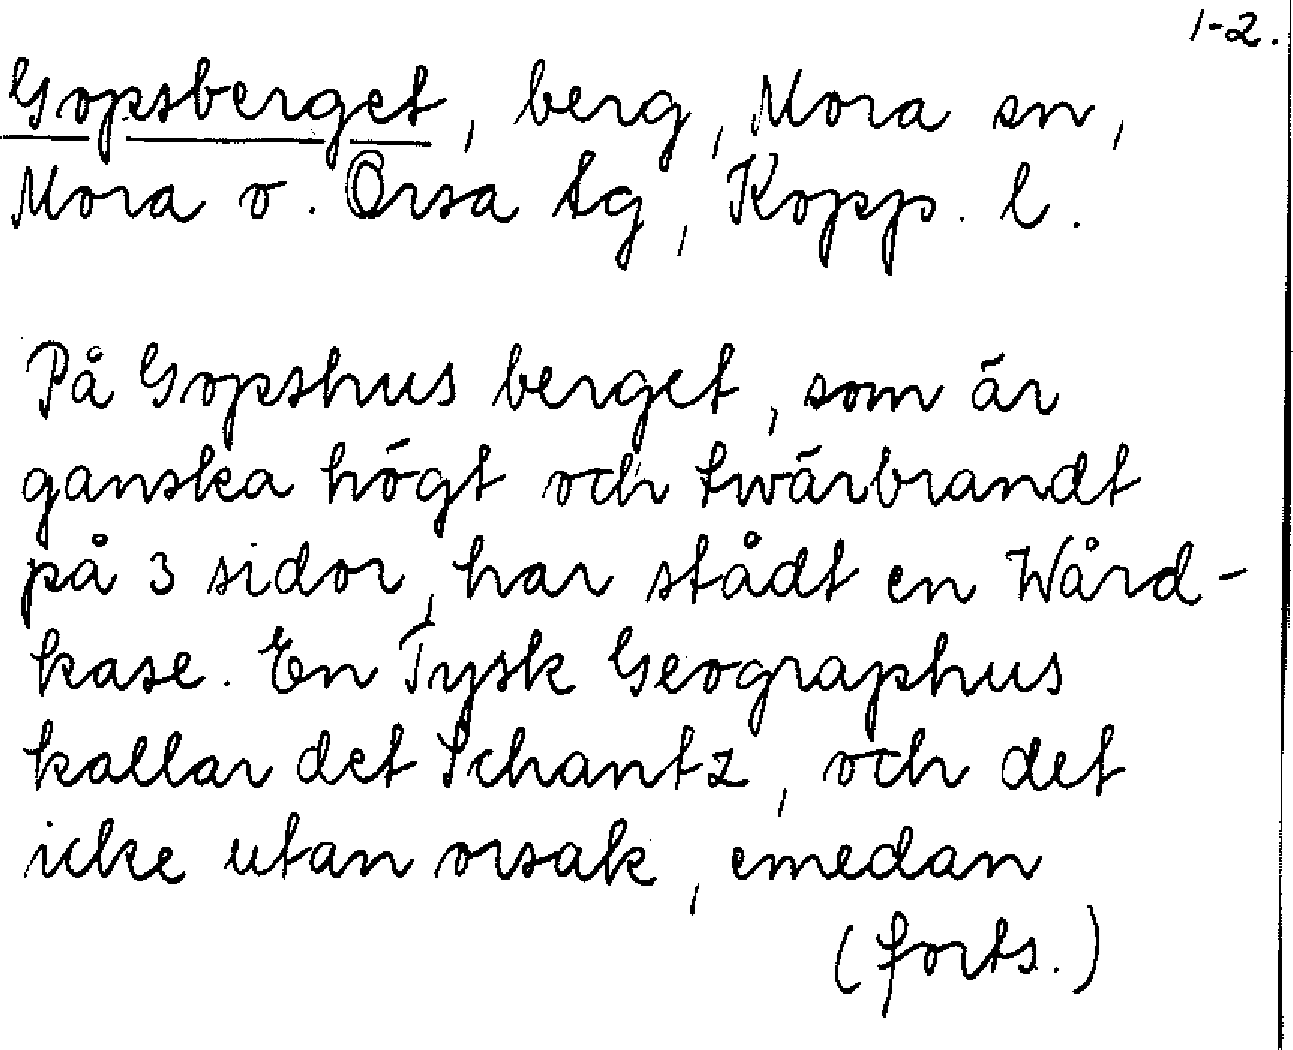 1-2.
Gopsberget, berg, Mora sn,
Mora o. Orsa tg, Kopp. l.
På Gopshus berget, som är
ganska högt och twärbrandt
på 3 sidor, har stådt en Wård-
kase. En Tysk Geographus
kallar det Schantz, och det
icke utan orsak, emedan
(forts.)